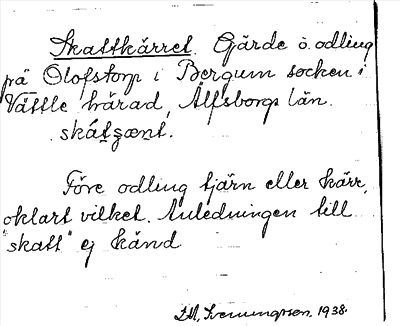 Skattkärret. Gärde o. odling
på Olofstorp i Bergum socken i
Vättle härad, Älfsborgs län.
Före odling tjärn eller kärr,
oklart vilket. Anledningen till
"skatt" ej känd
1938.